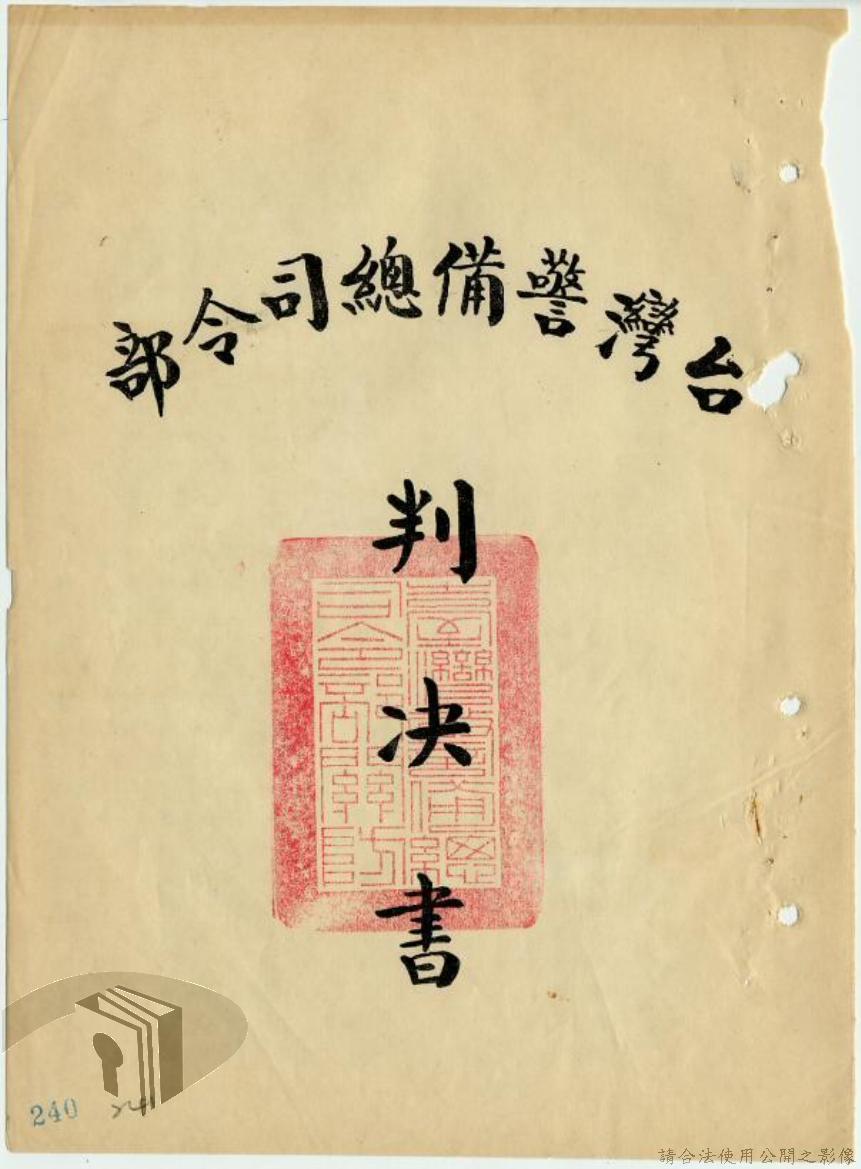 台灣警備總司令部
判決書
臺灣警備總
司令部關防
240
241
請合法使用公開之影像